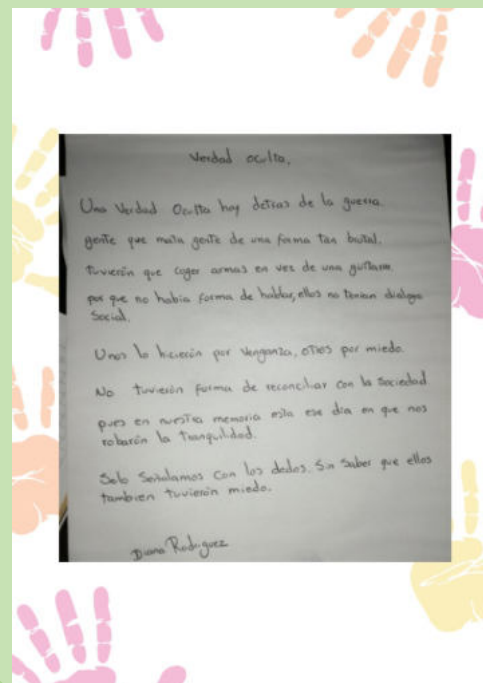 Verdad oculta.
Una Verdad Oculta hay detras de la guerra.
gente que mata gente de una forma tan brutal.
tuvierón que coger armas en ves de una guitarra.
por que no habia forma de hablar, ellos no tenian dialogo
Social.
Unos lo hicierón por venganza, otros por miedo.
No tuvierón forma de reconciliar con la Sociedad
pues en nuestra memoria esta ese dia en que nos
robarón la tranquilidad.
Solo Señalamos con los dedos. Sin Saber que ellos
tambien tuvierón miedo.
Diana Rodriguez